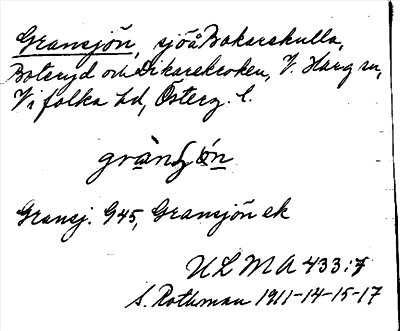 Gransjön, sjö å Bokarskulla,
Boteryd och Dikarekroken, V. Harg sn,
Vifolka hd, Österg. l.
grànʃø̀n
Gransj. G45, Gransjön ek
ULMA 433:7
S. Rothman 1911-14-15-17